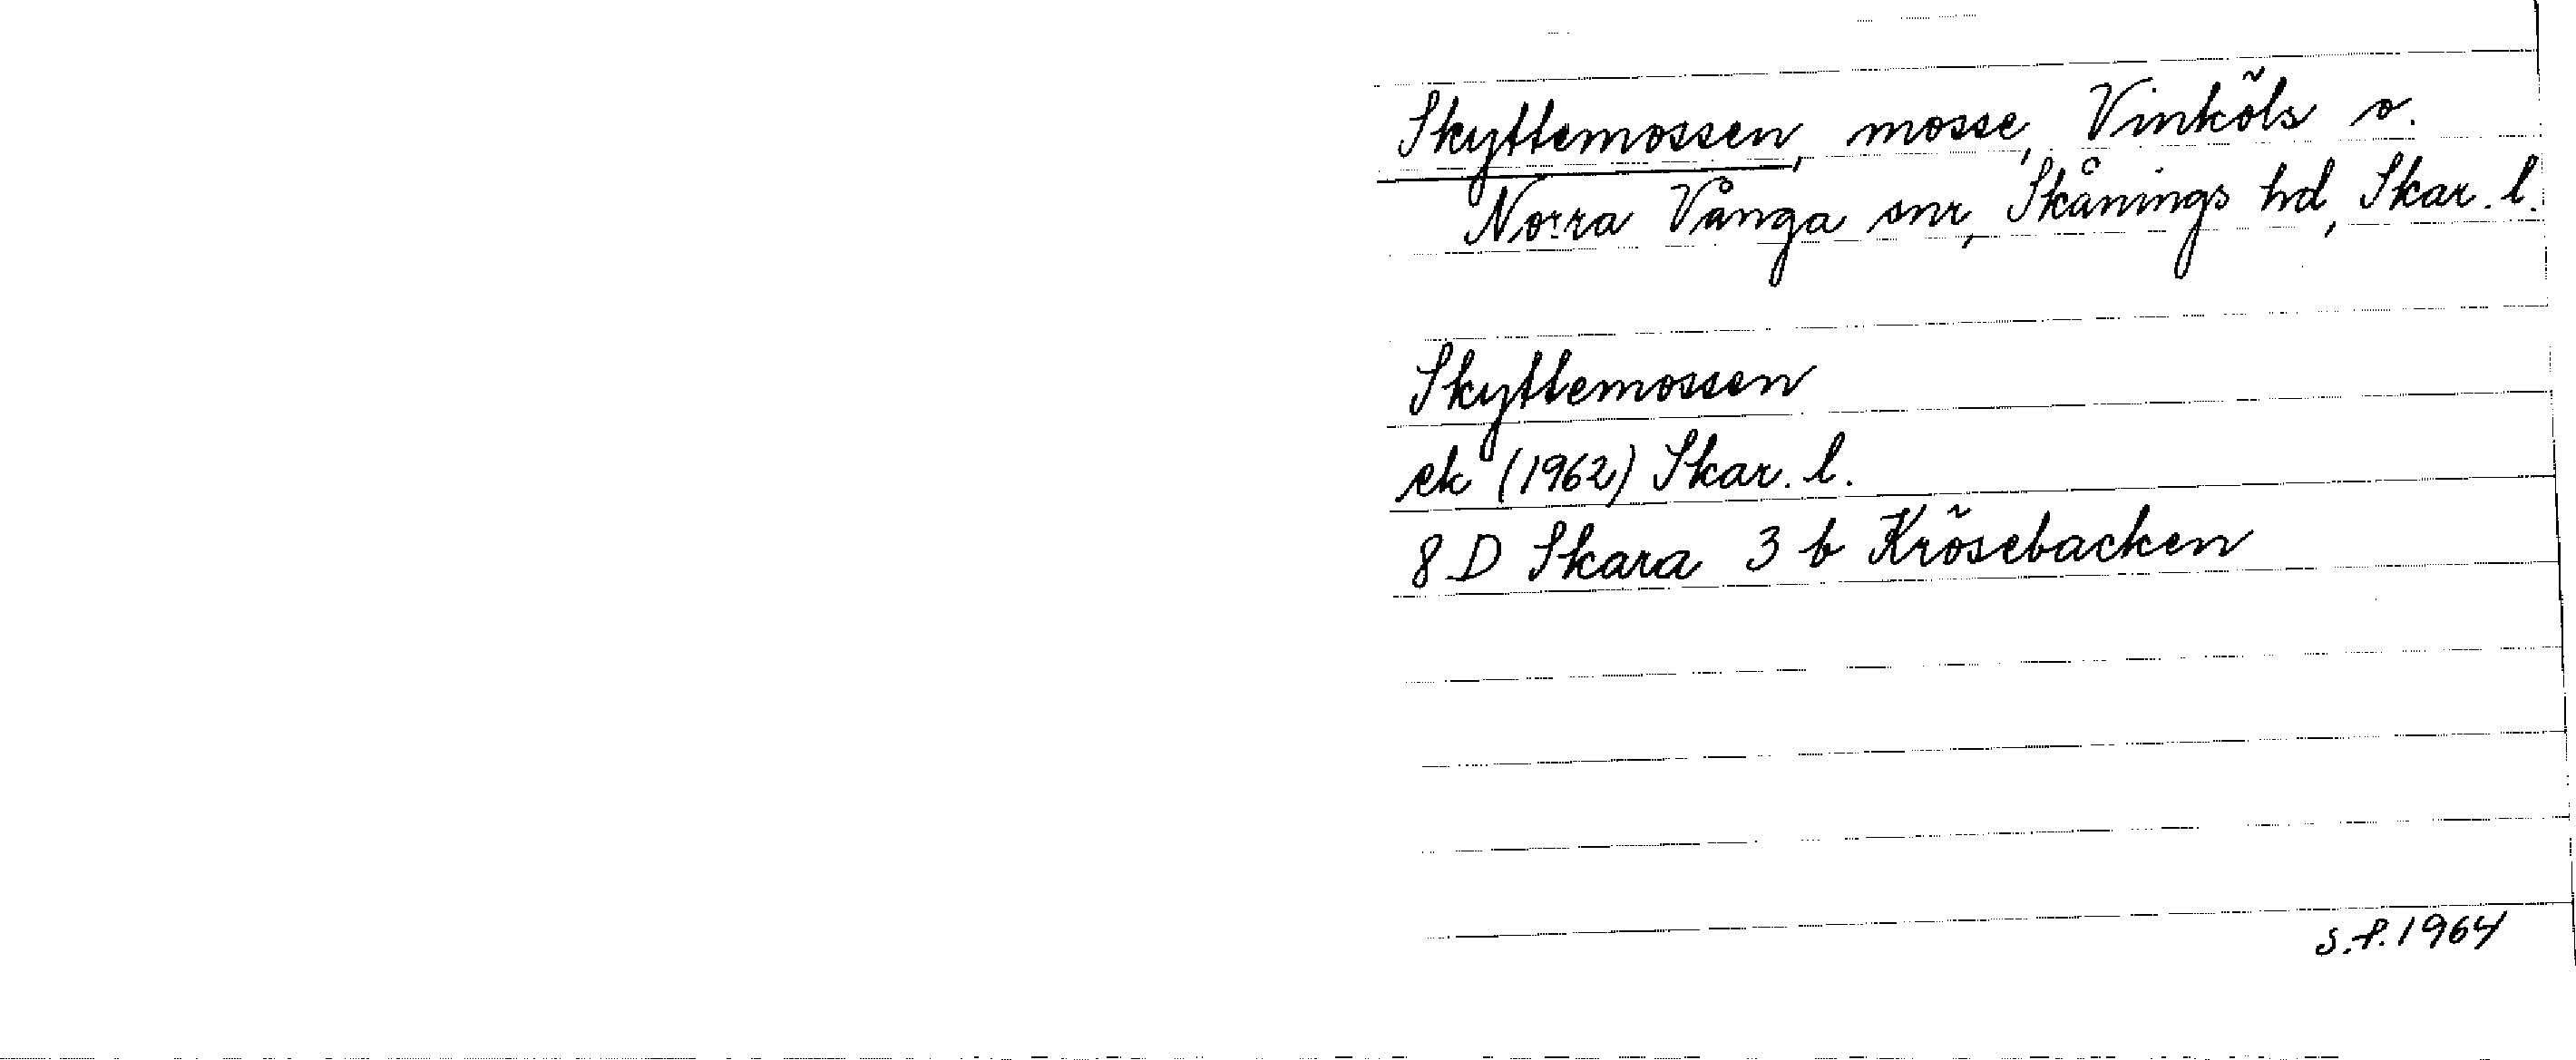 Skyttemossen, mosse, Vinköls o.
Norra Vånga snr, Skånings hd, Skar. l.
Skyttemossen
ek (1962) Skar. l.
8 D Skara 3 b Krösebacken
S.f. 1964